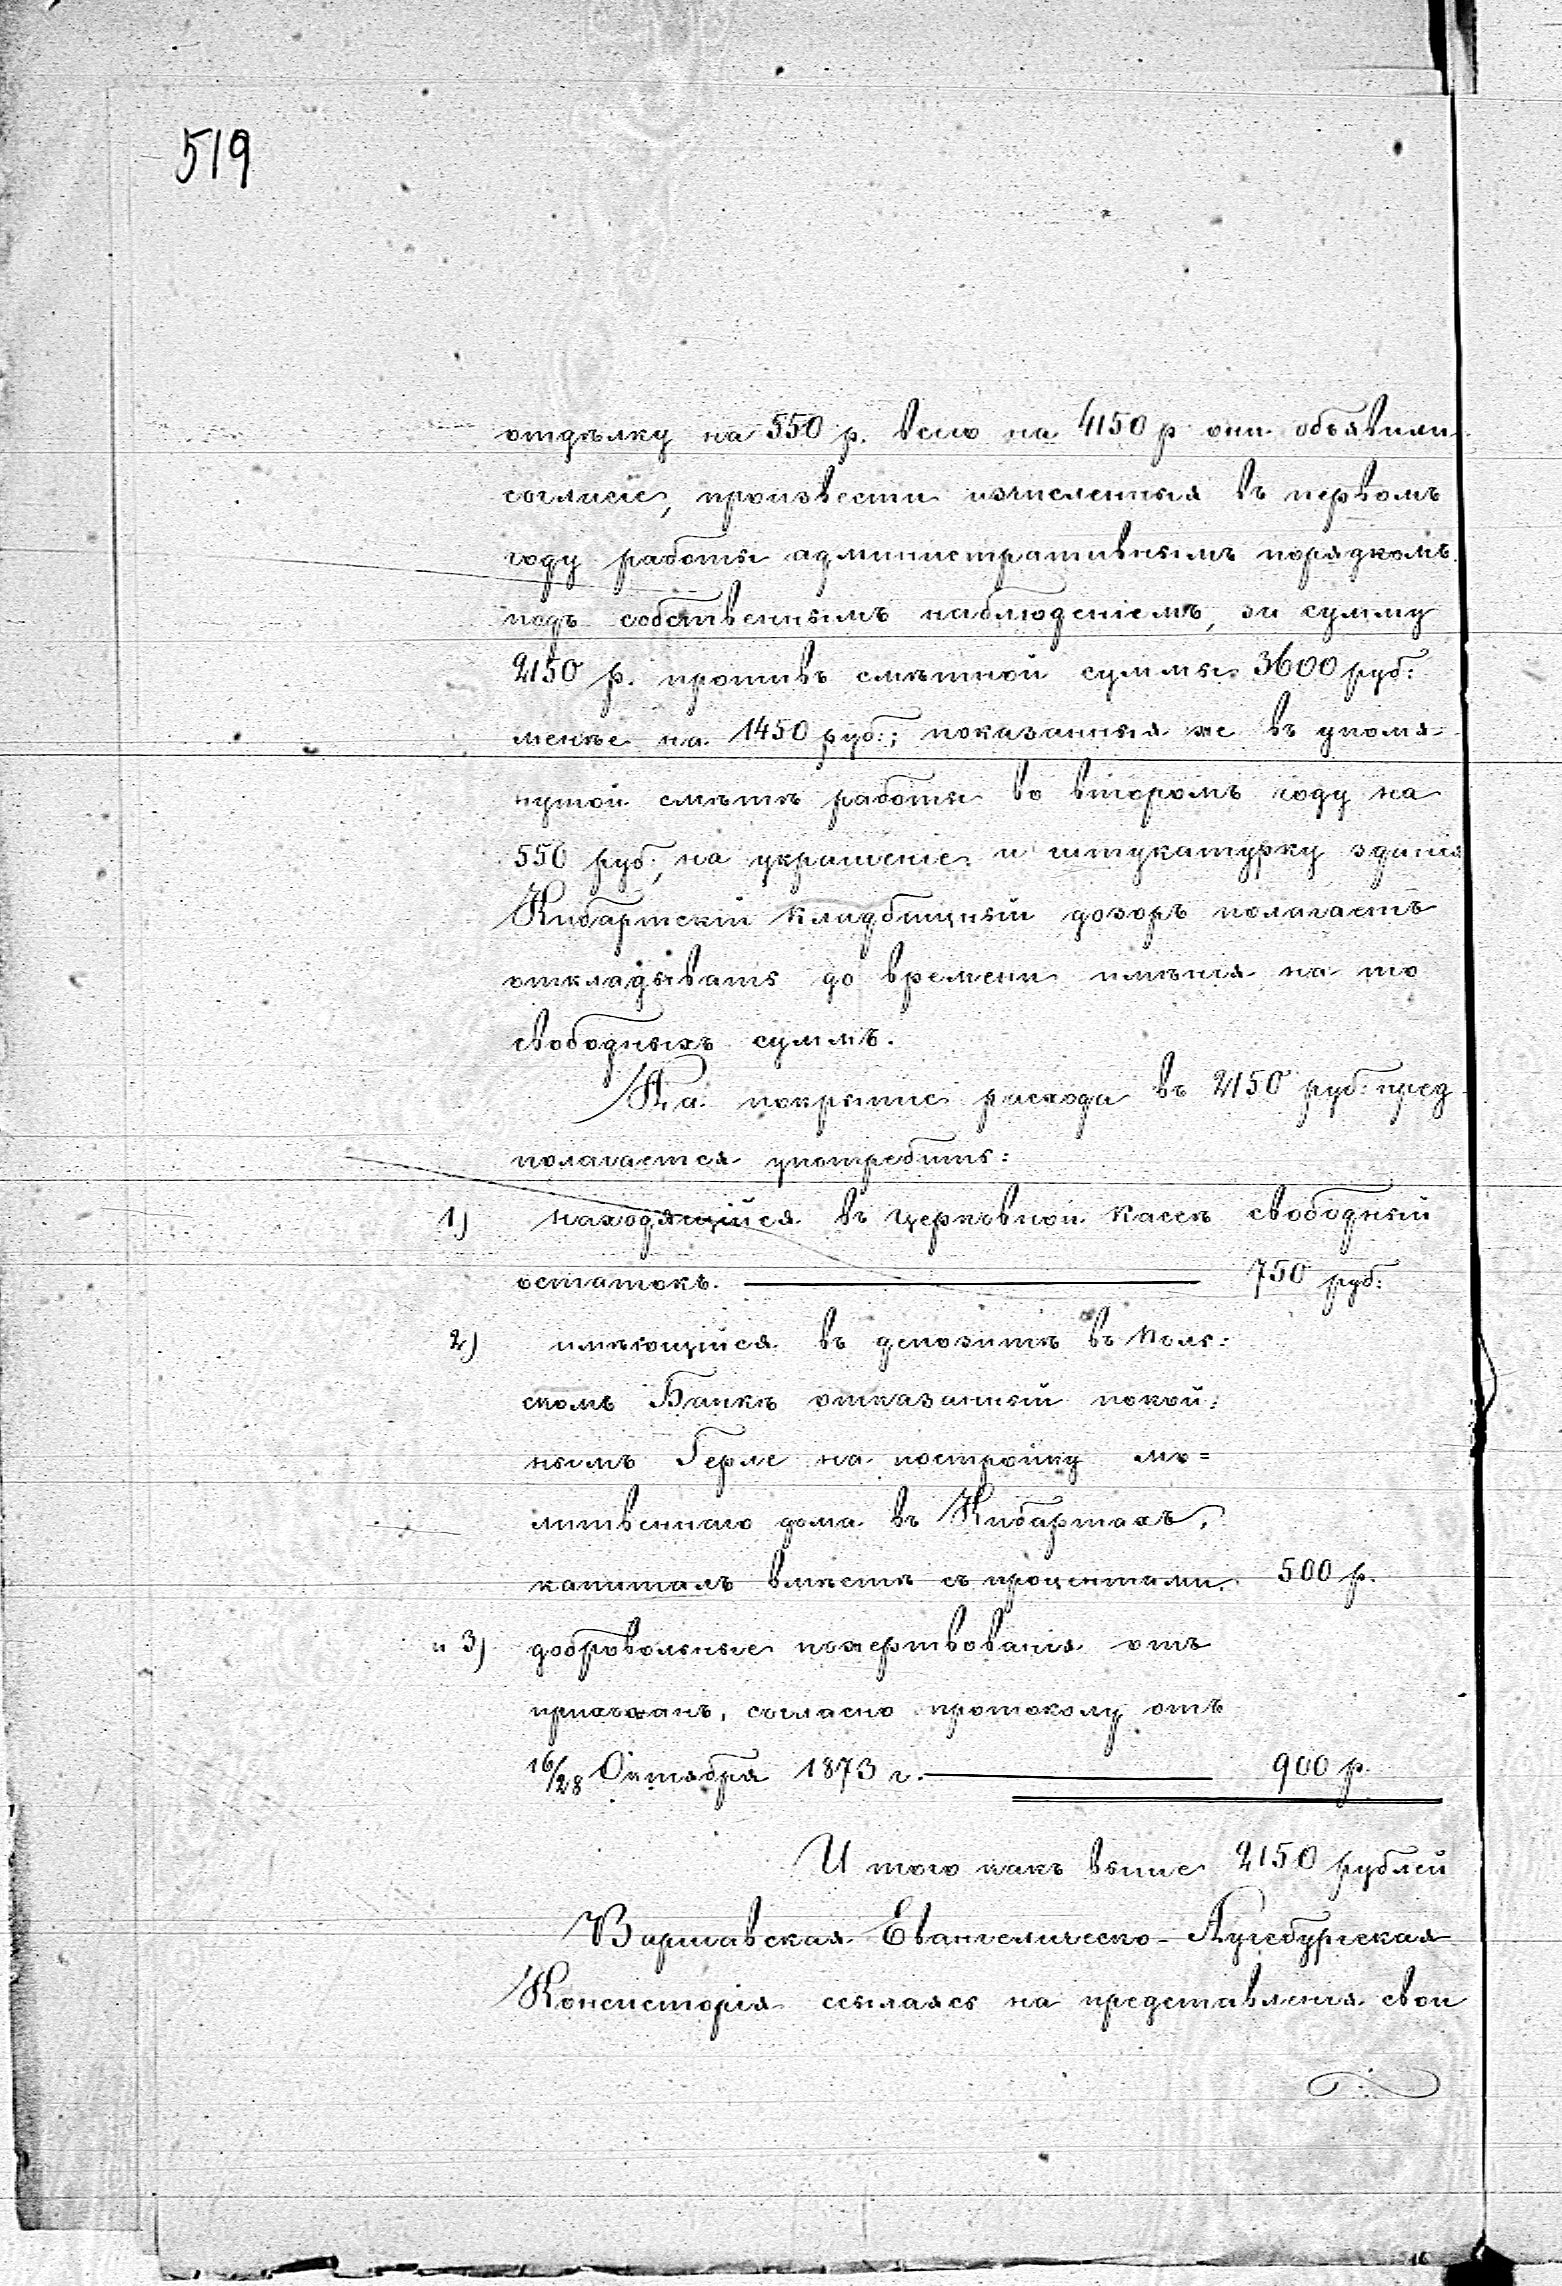 519
отдѣлку на 550 р. всего на 4150 р они объявили
согласіе, произвести изчисленныя въ первомъ
году работы административнымъ порядкомъ
подъ собственнымъ наблюденіемъ, за сумму
2150 р. противъ смѣтной суммы 3600 руб:
менѣе на 1450 руб:; показанныя же въ упомя-
нутой смѣтѣ работы во второмъ году на
550 руб:, на украшеніе и штукатурку зданія
Кибартскій кладбищный дозоръ полагаетъ
откладывать до времени имѣнія на то
свободныхъ суммъ.
На покрытіе расхода въ 2150 руб: пред-
полагается употребить:
1) находящійся въ церковной кассѣ свободный
остатокъ. 750 руб:
2) имѣющійся въ депозитѣ въ Поль:
скомъ Банкѣ отказанный покой:
нымъ Герле на постройку мо=
литвеннаго дома въ Кибартахъ,
капиталъ вмѣстѣ съ процентами. 500 р.
и 3) добровольные пожертвованія отъ
прихожанъ, согласно протоколу отъ
16/28 Октября 1873 г. 900 р.
И того какъ выше 2150 рублей
Варшавская Евангелическо-Аугсбургская
Консисторія ссылаясь на представленія свои